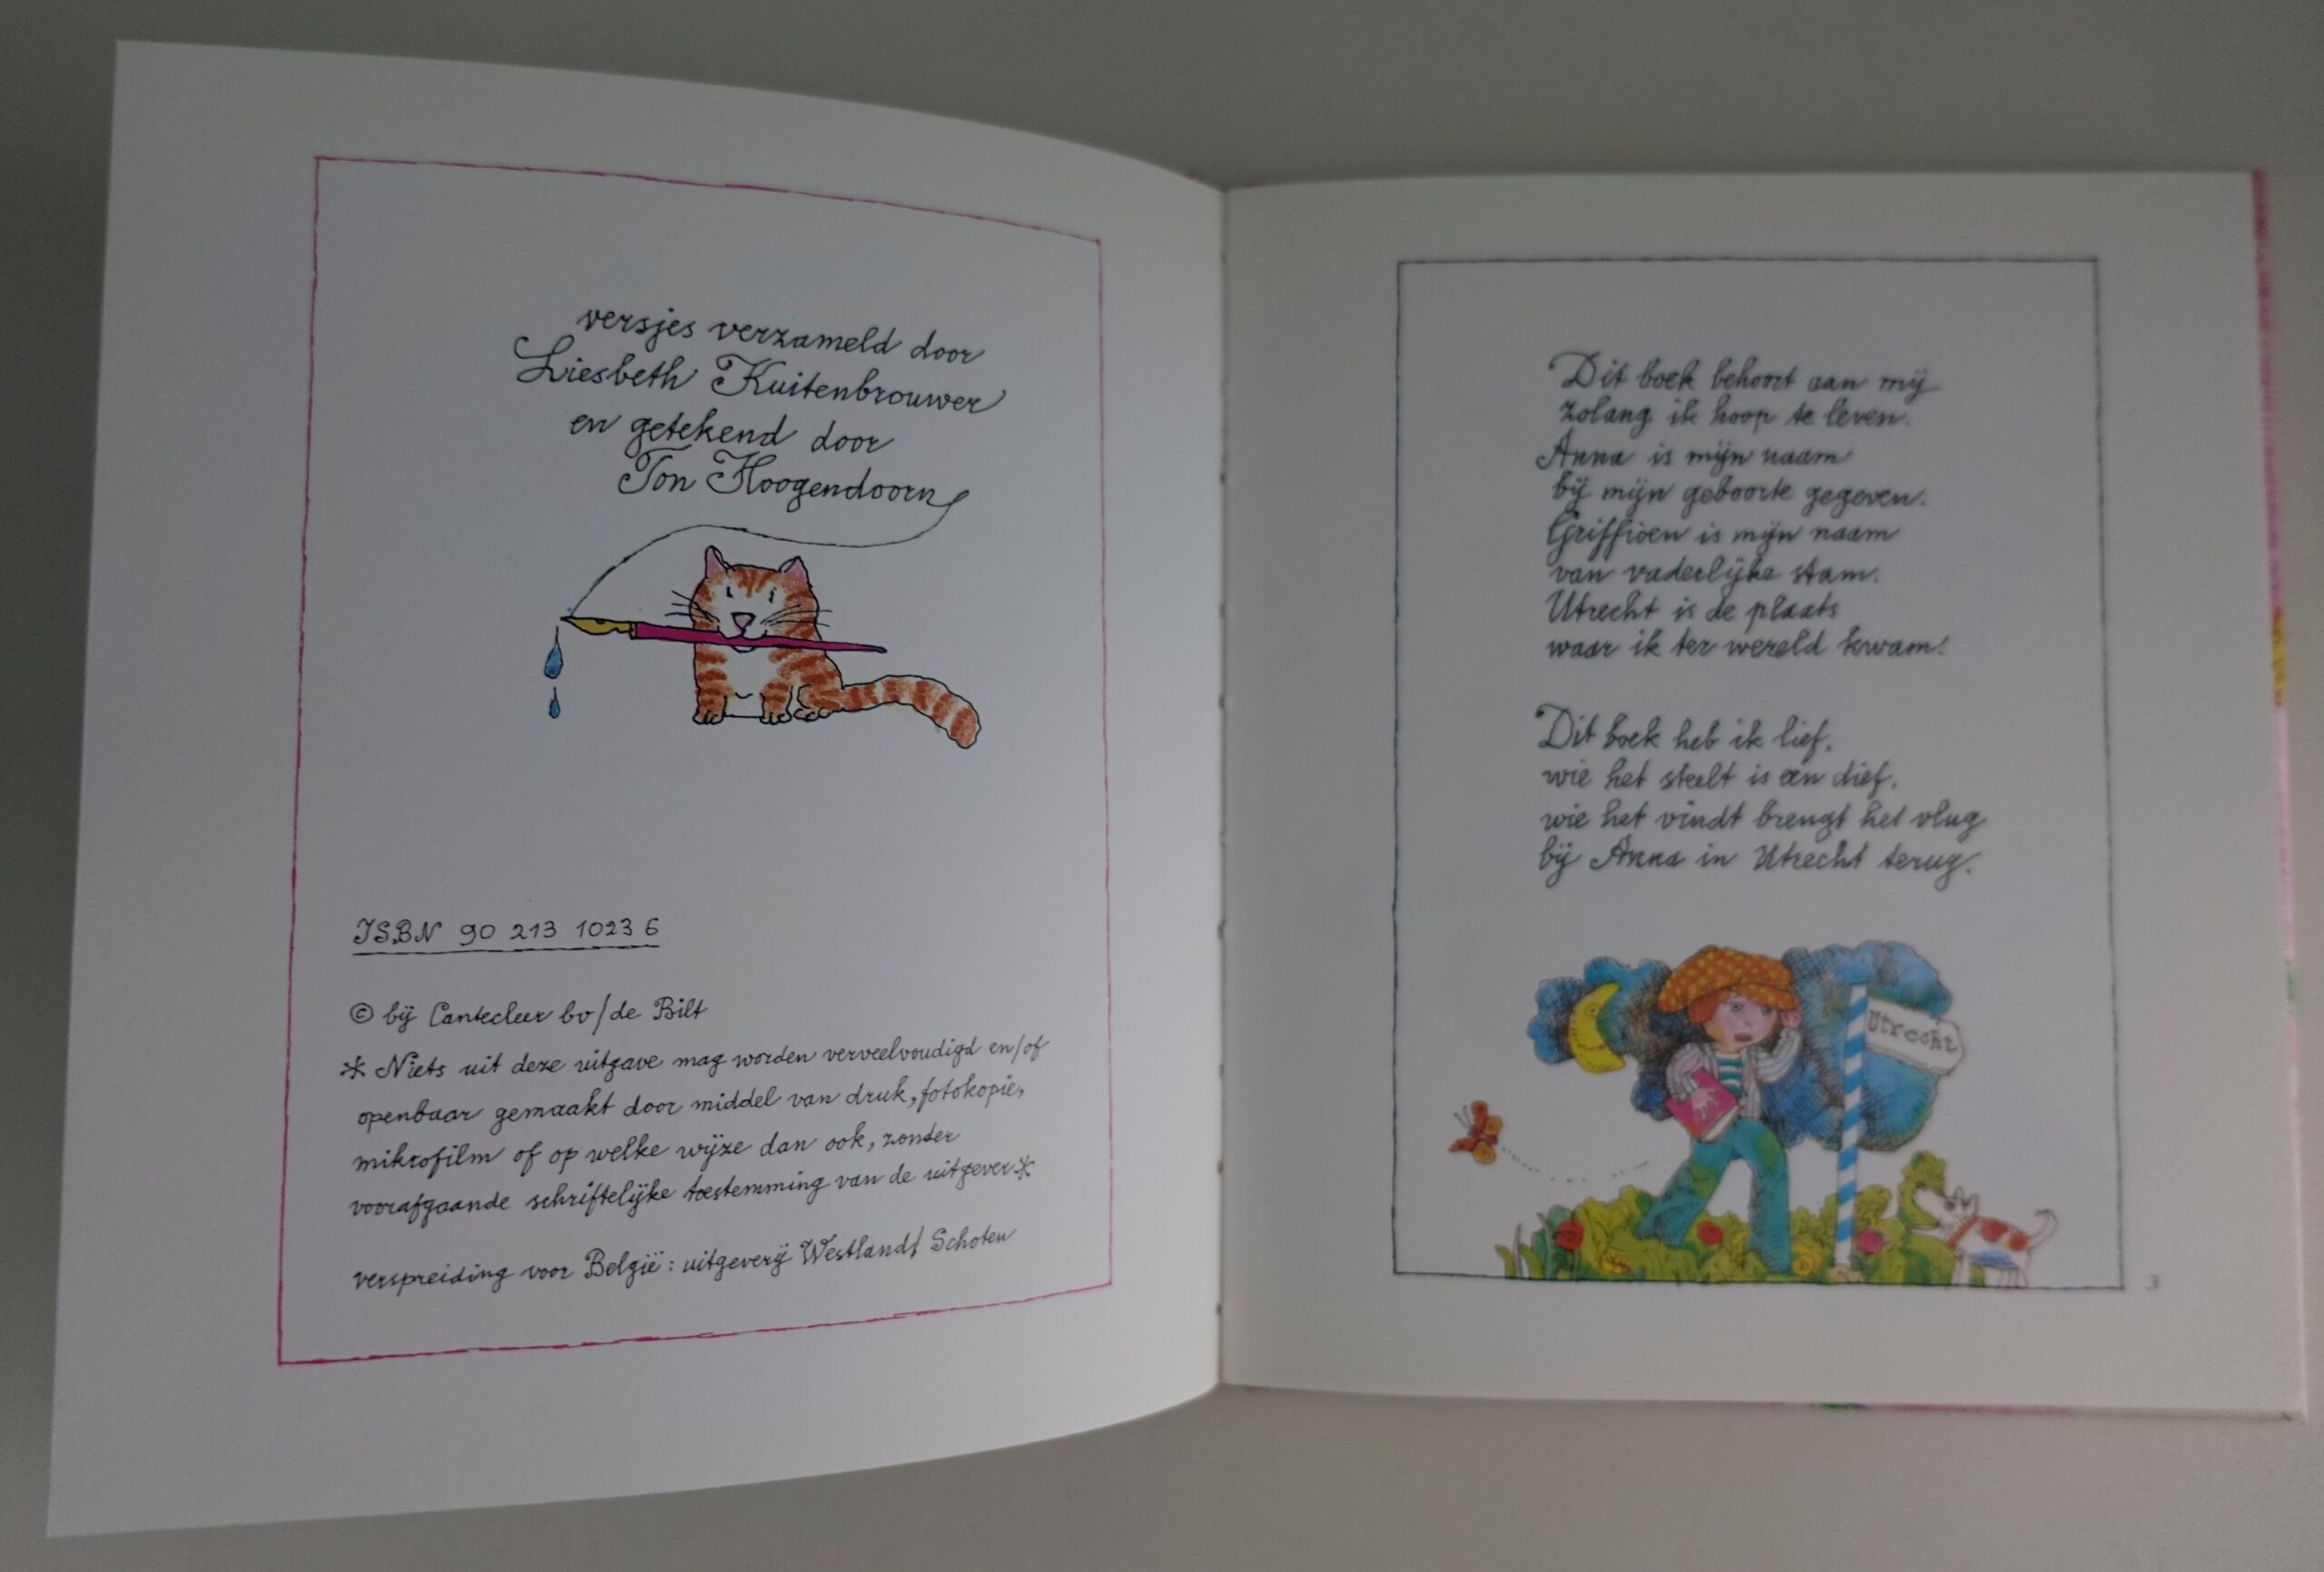 versjes verzameld door
Liesbeth Kuitenbrouwer
en getekend door
Ton Hoogendoorn
ISBN 90 213 1023 6
© bij Cantecleer bv/de Bilt
* Niets uit deze uitgave mag worden verveelvoudigd en/of
openbaar gemaakt door middel van druk, fotokopie,
mikrofilm of op welke wijze dan ook, zonder
voorafgaande schriftelijke toestemming van de uitgever*
verspreiding voor België: uitgeverij Westland/Schoten
Dit boek behoort aan mij
zolang ik hoop te leven.
Anna is mijn naam
bij mijn geboorte gegeven.
Griffioen is mijn naam
van vaderlijke stam.
Utrecht is de plaats
waar ik ter wereld kwam!
Dit boek heb ik lief,
wie het steelt is een dief,
wie het vindt brengt het vlug
bij Anna in Utrecht terug.
Utrecht
3